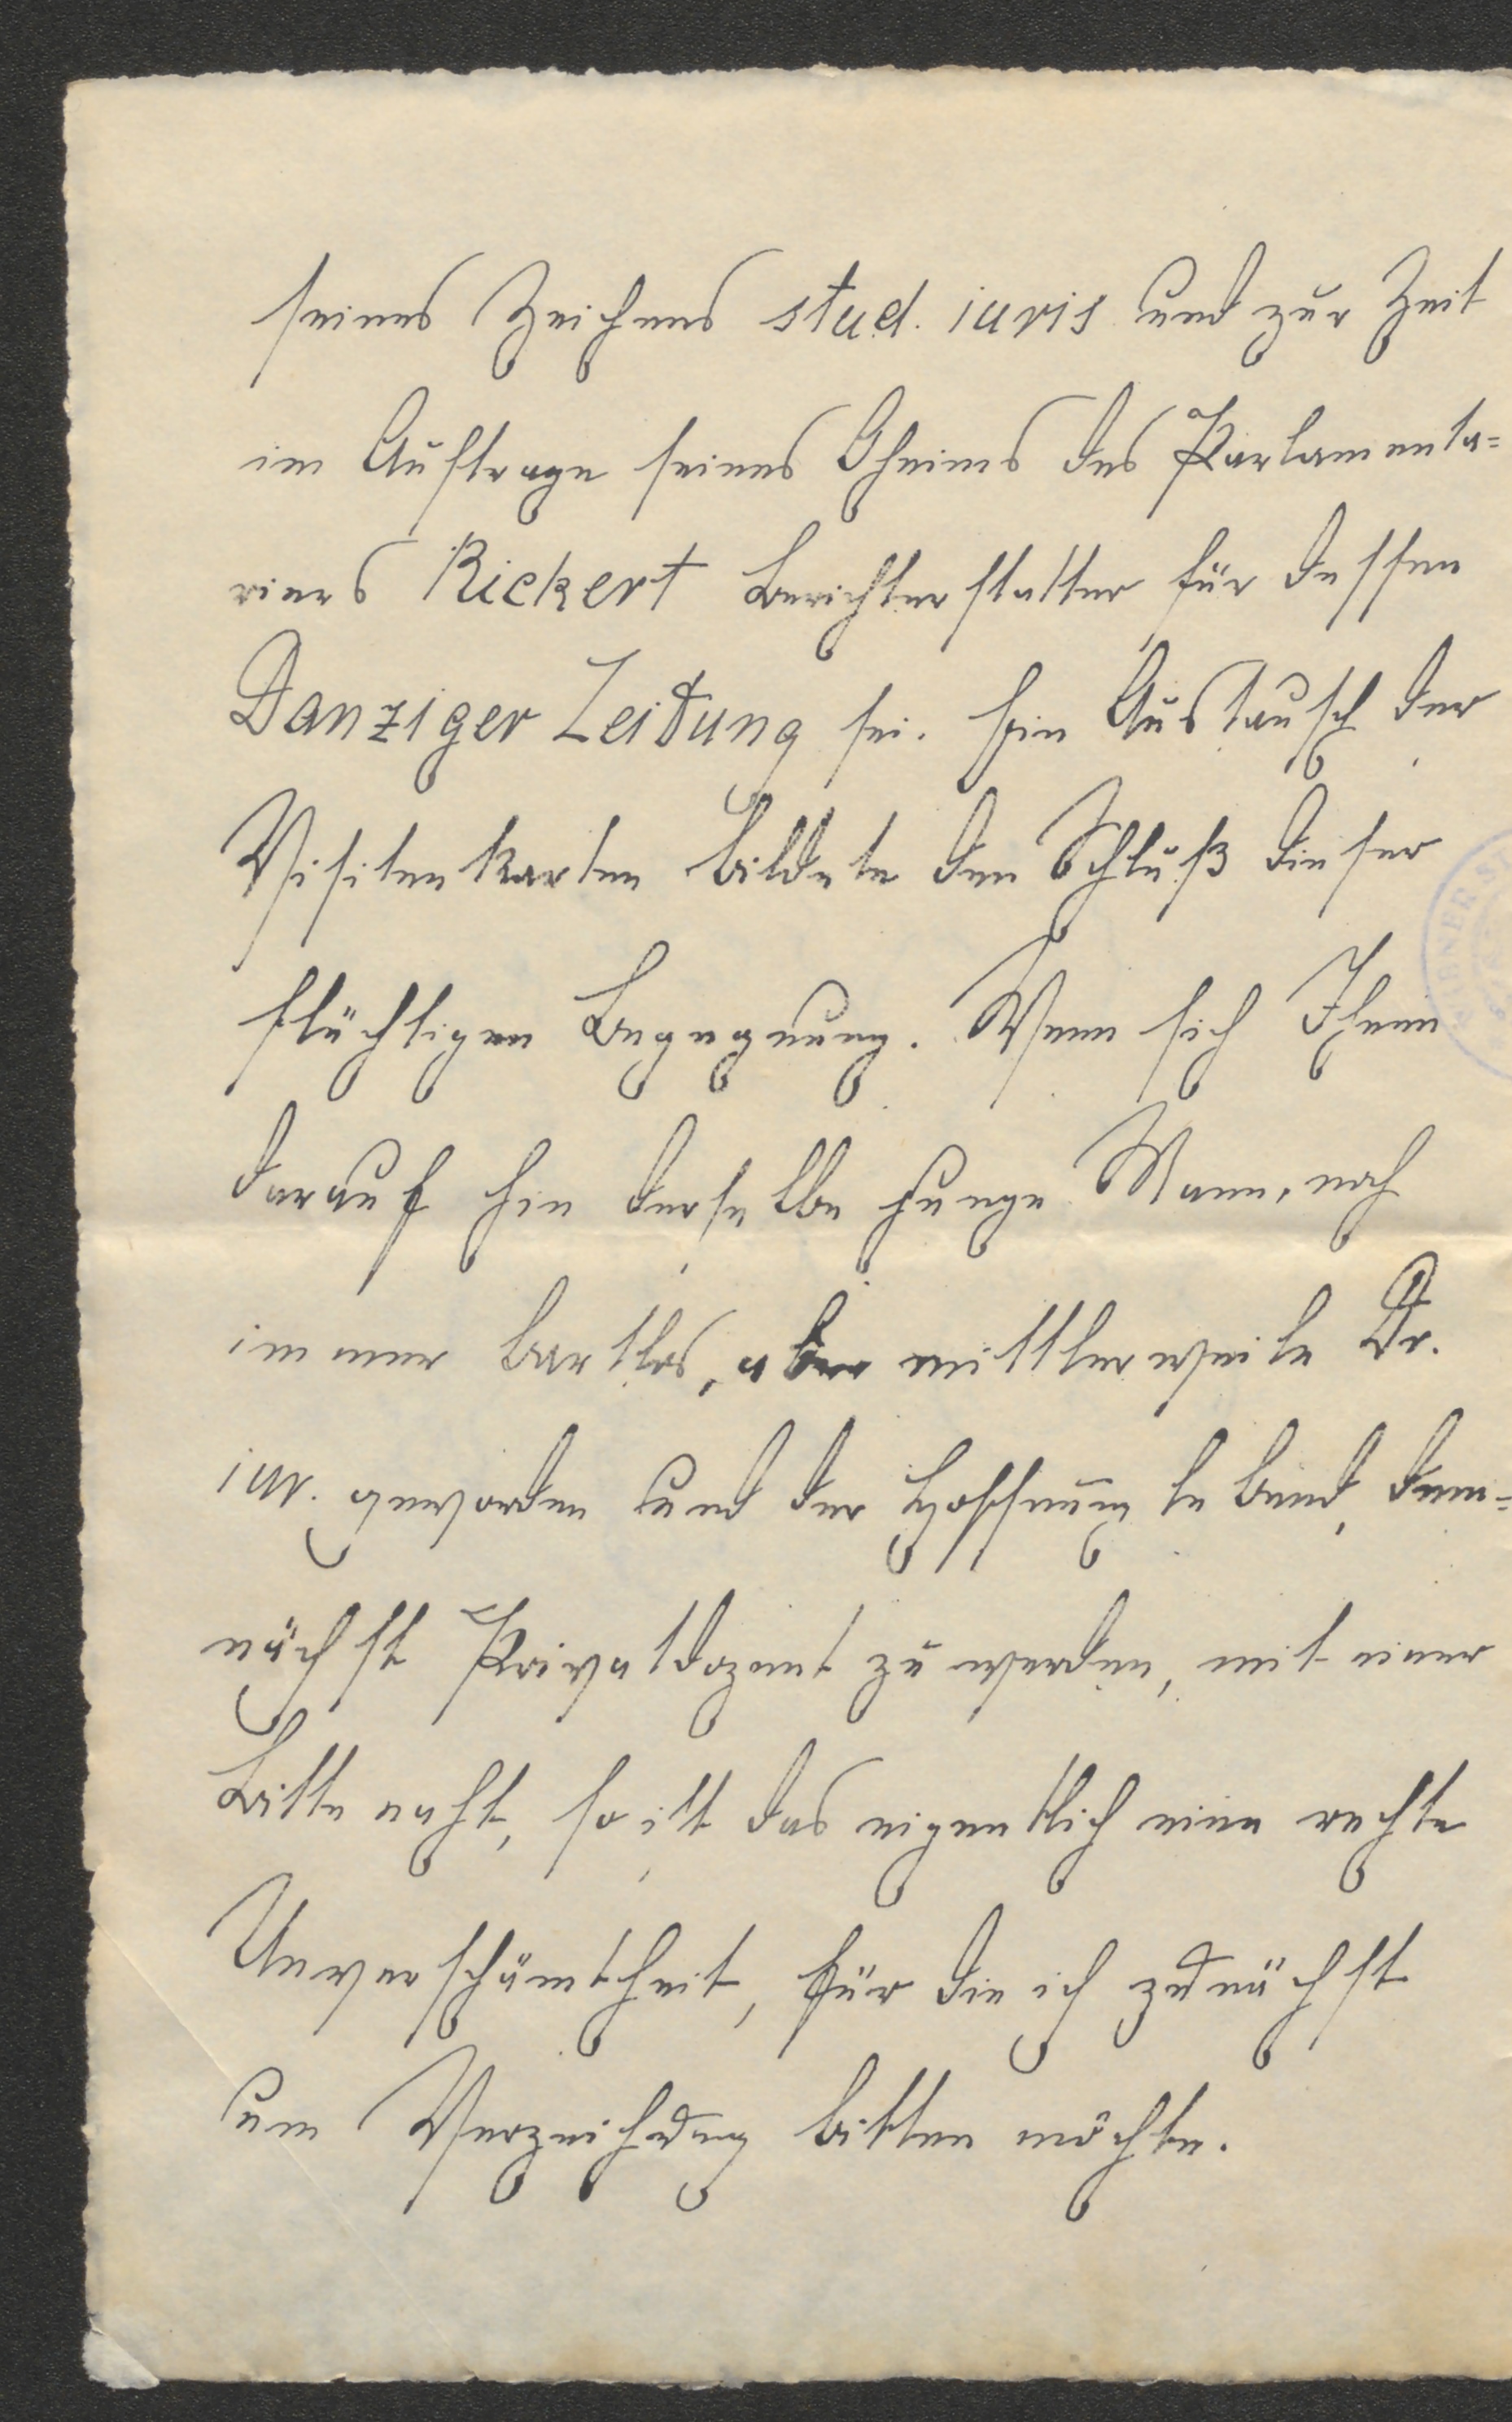 seines Zeichens stud. iuris und zur Zeit
im Auftrage seines Oheims des Parlamenta-
riers Rickert Berichterstatter für dessen
Danziger Zeitung sei. Ein Austausch der
Visitenkarten bildete den Schluß dieser
flüchtigen Begegnung. Wenn sich Ihnen
darauf hin derselbe junge Mann, noch
immer bartlos, aber mittlerweile Dr.
iur. geworden und der Hoffnung lebend, dem-
nächst Privatdozent zu werden, mit einer
Bitte naht, so ist das eigentlich eine rechte
Unverschämtheit, für die ich zunächst
um Verzeihung bitten möchte.